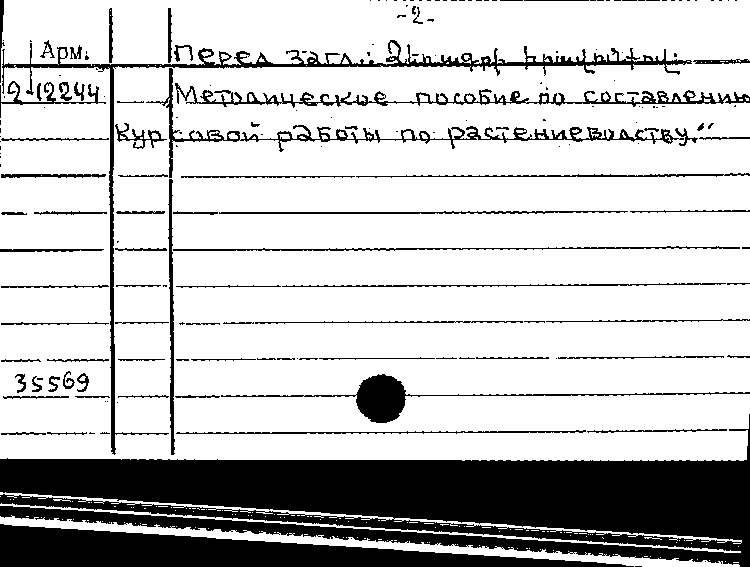 -2-
Арм. Перед загл.: Ձեռագրի իրավունքով:
2-12244 Методическое пособие по составлению
курсовой работы по растениеводству."
35569